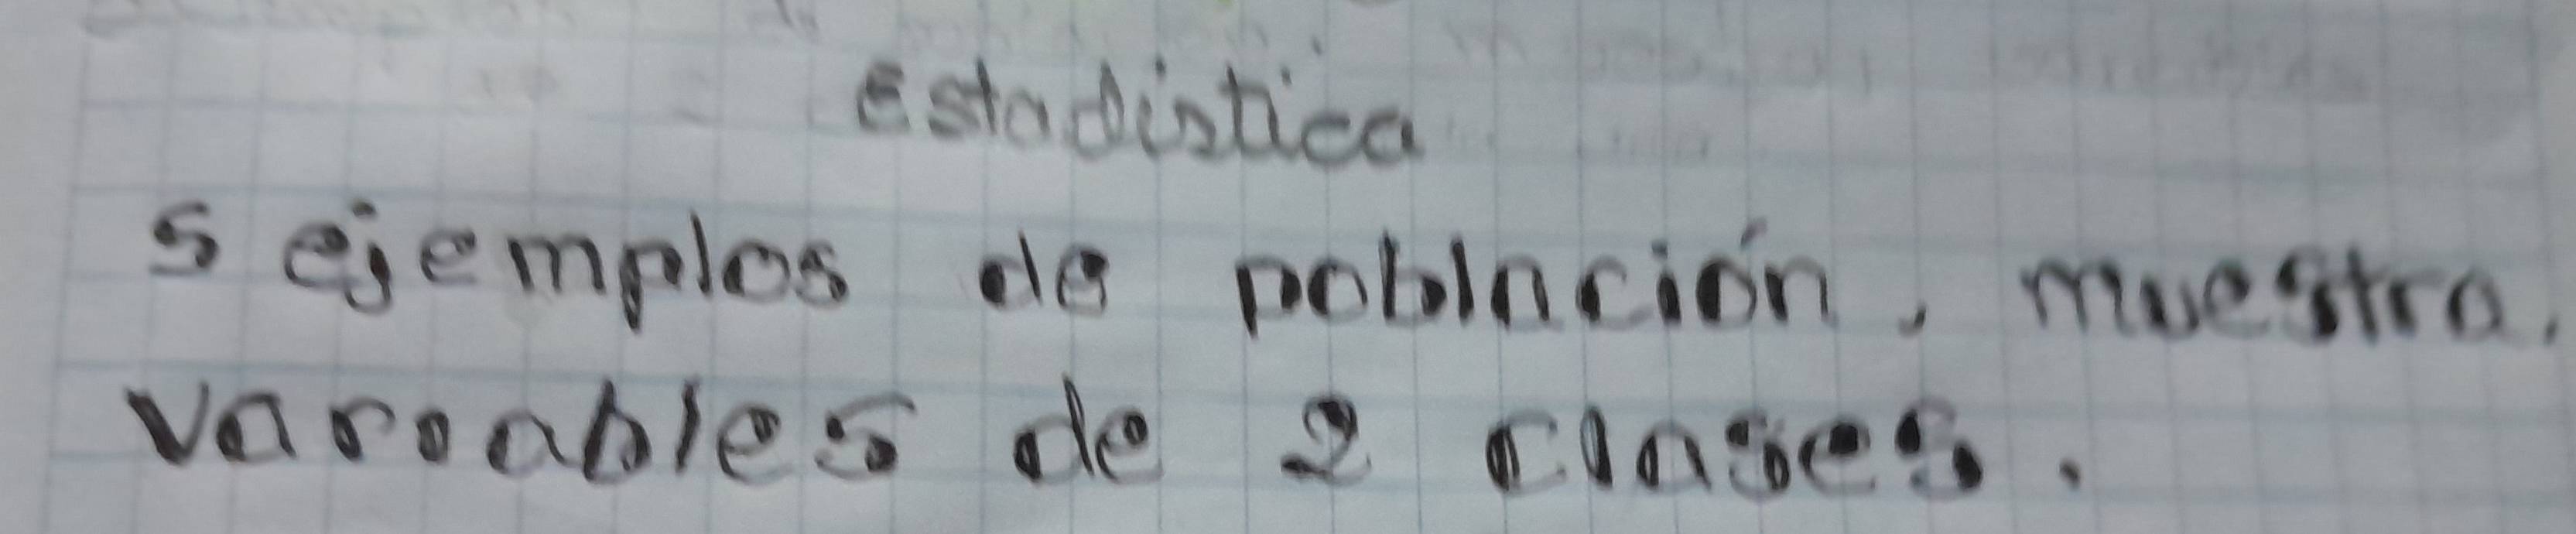 Estadistica
5 ejemplos de población, muestra,
variables de 2 clases.